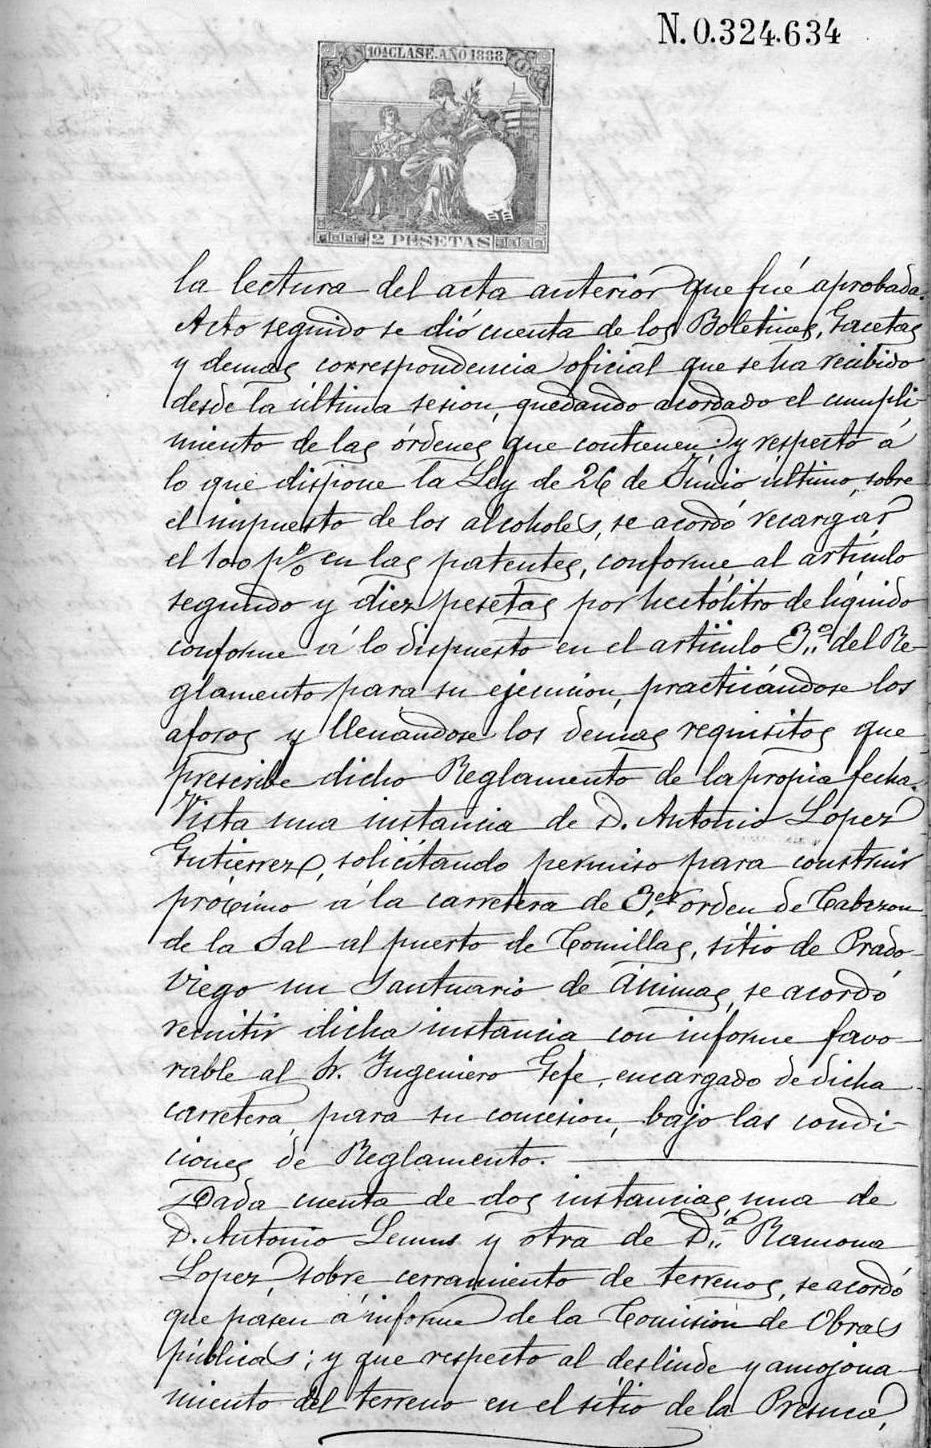 N. 0.324.634
10ª CLASE. AÑO 1888
2 PESETAS
la lectura del acta anterior que fué aprobada.
Acto seguido se dió cuenta de los Boletines, Gacetas
y demas correspondencia oficial que se ha recibido
desde la última sesion, quedando acordado el cumpli-
miento de las órdenes que contienen: y respecto á
lo que dispone la Ley de 26 de Junio último, sobre
el impuesto de los alcoholes, se acordó recargar
el 100 p% en las patentes, conforme al artículo
segundo y diez pesetas por hectólitro de líquido
conforme á lo dispuesto en el artículo 3.º del Re-
glamento para su ejecucion, practicándose los
aforos y llenandose los demas requisitos que
prescribe dicho Reglamento de la propia fecha.
Vista una instancia de D. Antonio Lopez
Gutierrez, solicitando permiso para construir
prócsimo á la carretera de 3.er orden de Cabezon
de la Sal al puerto de Comillas, sitio de Prado-
Viego un Santuario de Ánimas, se acordó
remitir dicha instancia con informe favo-
rable al Sr. Ingeniero Gefe, encargado de dicha
carretera, para su concesion, bajo las condi-
ciones de Reglamento.
Dada cuenta de dos instancias, una de
D. Antonio y otra de D.ª Ramona
Lopez, sobre cerramiento de terrenos, se acordó
que pasen á informe de la Comision de Obras
públicas; y que respecto al deslinde y amojona-
miento del terreno en el sitio de la